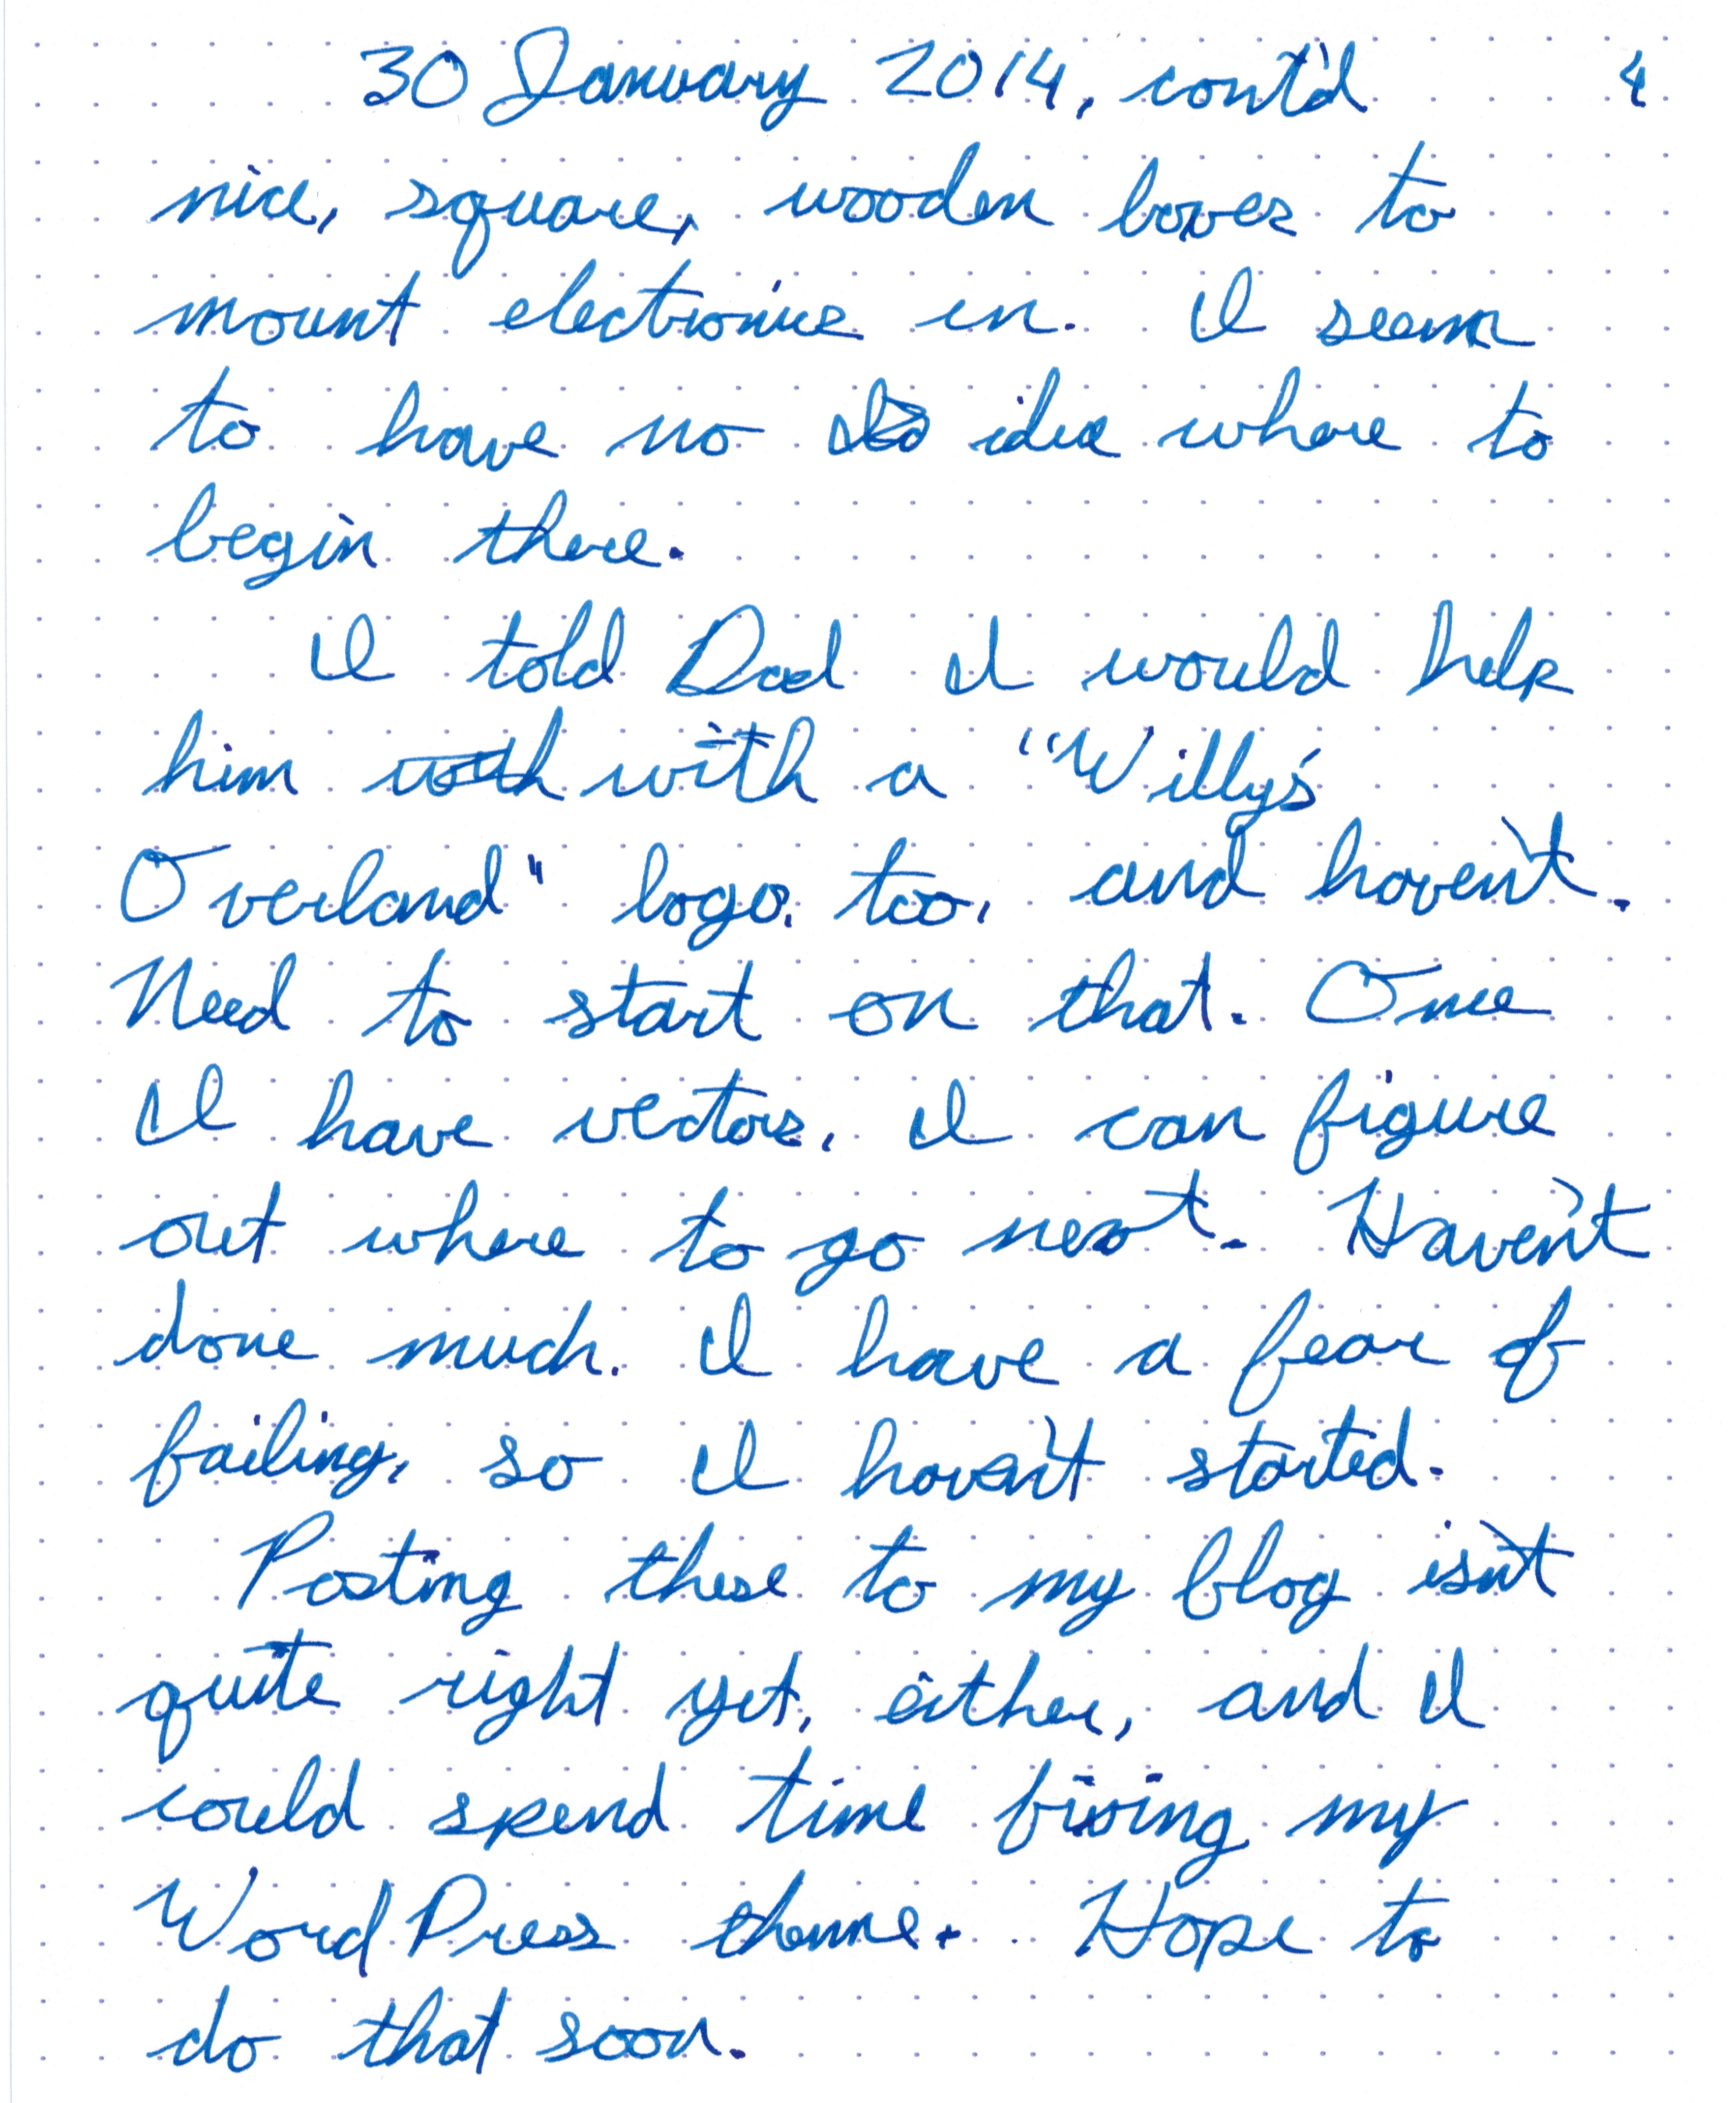 30 January 2014, cont'd 4
nice, square, wooden boxes to
mount electronics in. I seem
to have no idea where to
begin there.
I told Dad I would help
him with with a "Willy's
Overland" logo, too, and haven't.
Need to start on that. Once
I have vectors, I can figure
out where to go next. Haven't
done much. I have a fear of
failing, so I haven't started.
Posting these to my blog isn't
quite right yet, either, and I
could spend time fixing my
WordPress theme. Hope to
do that soon.